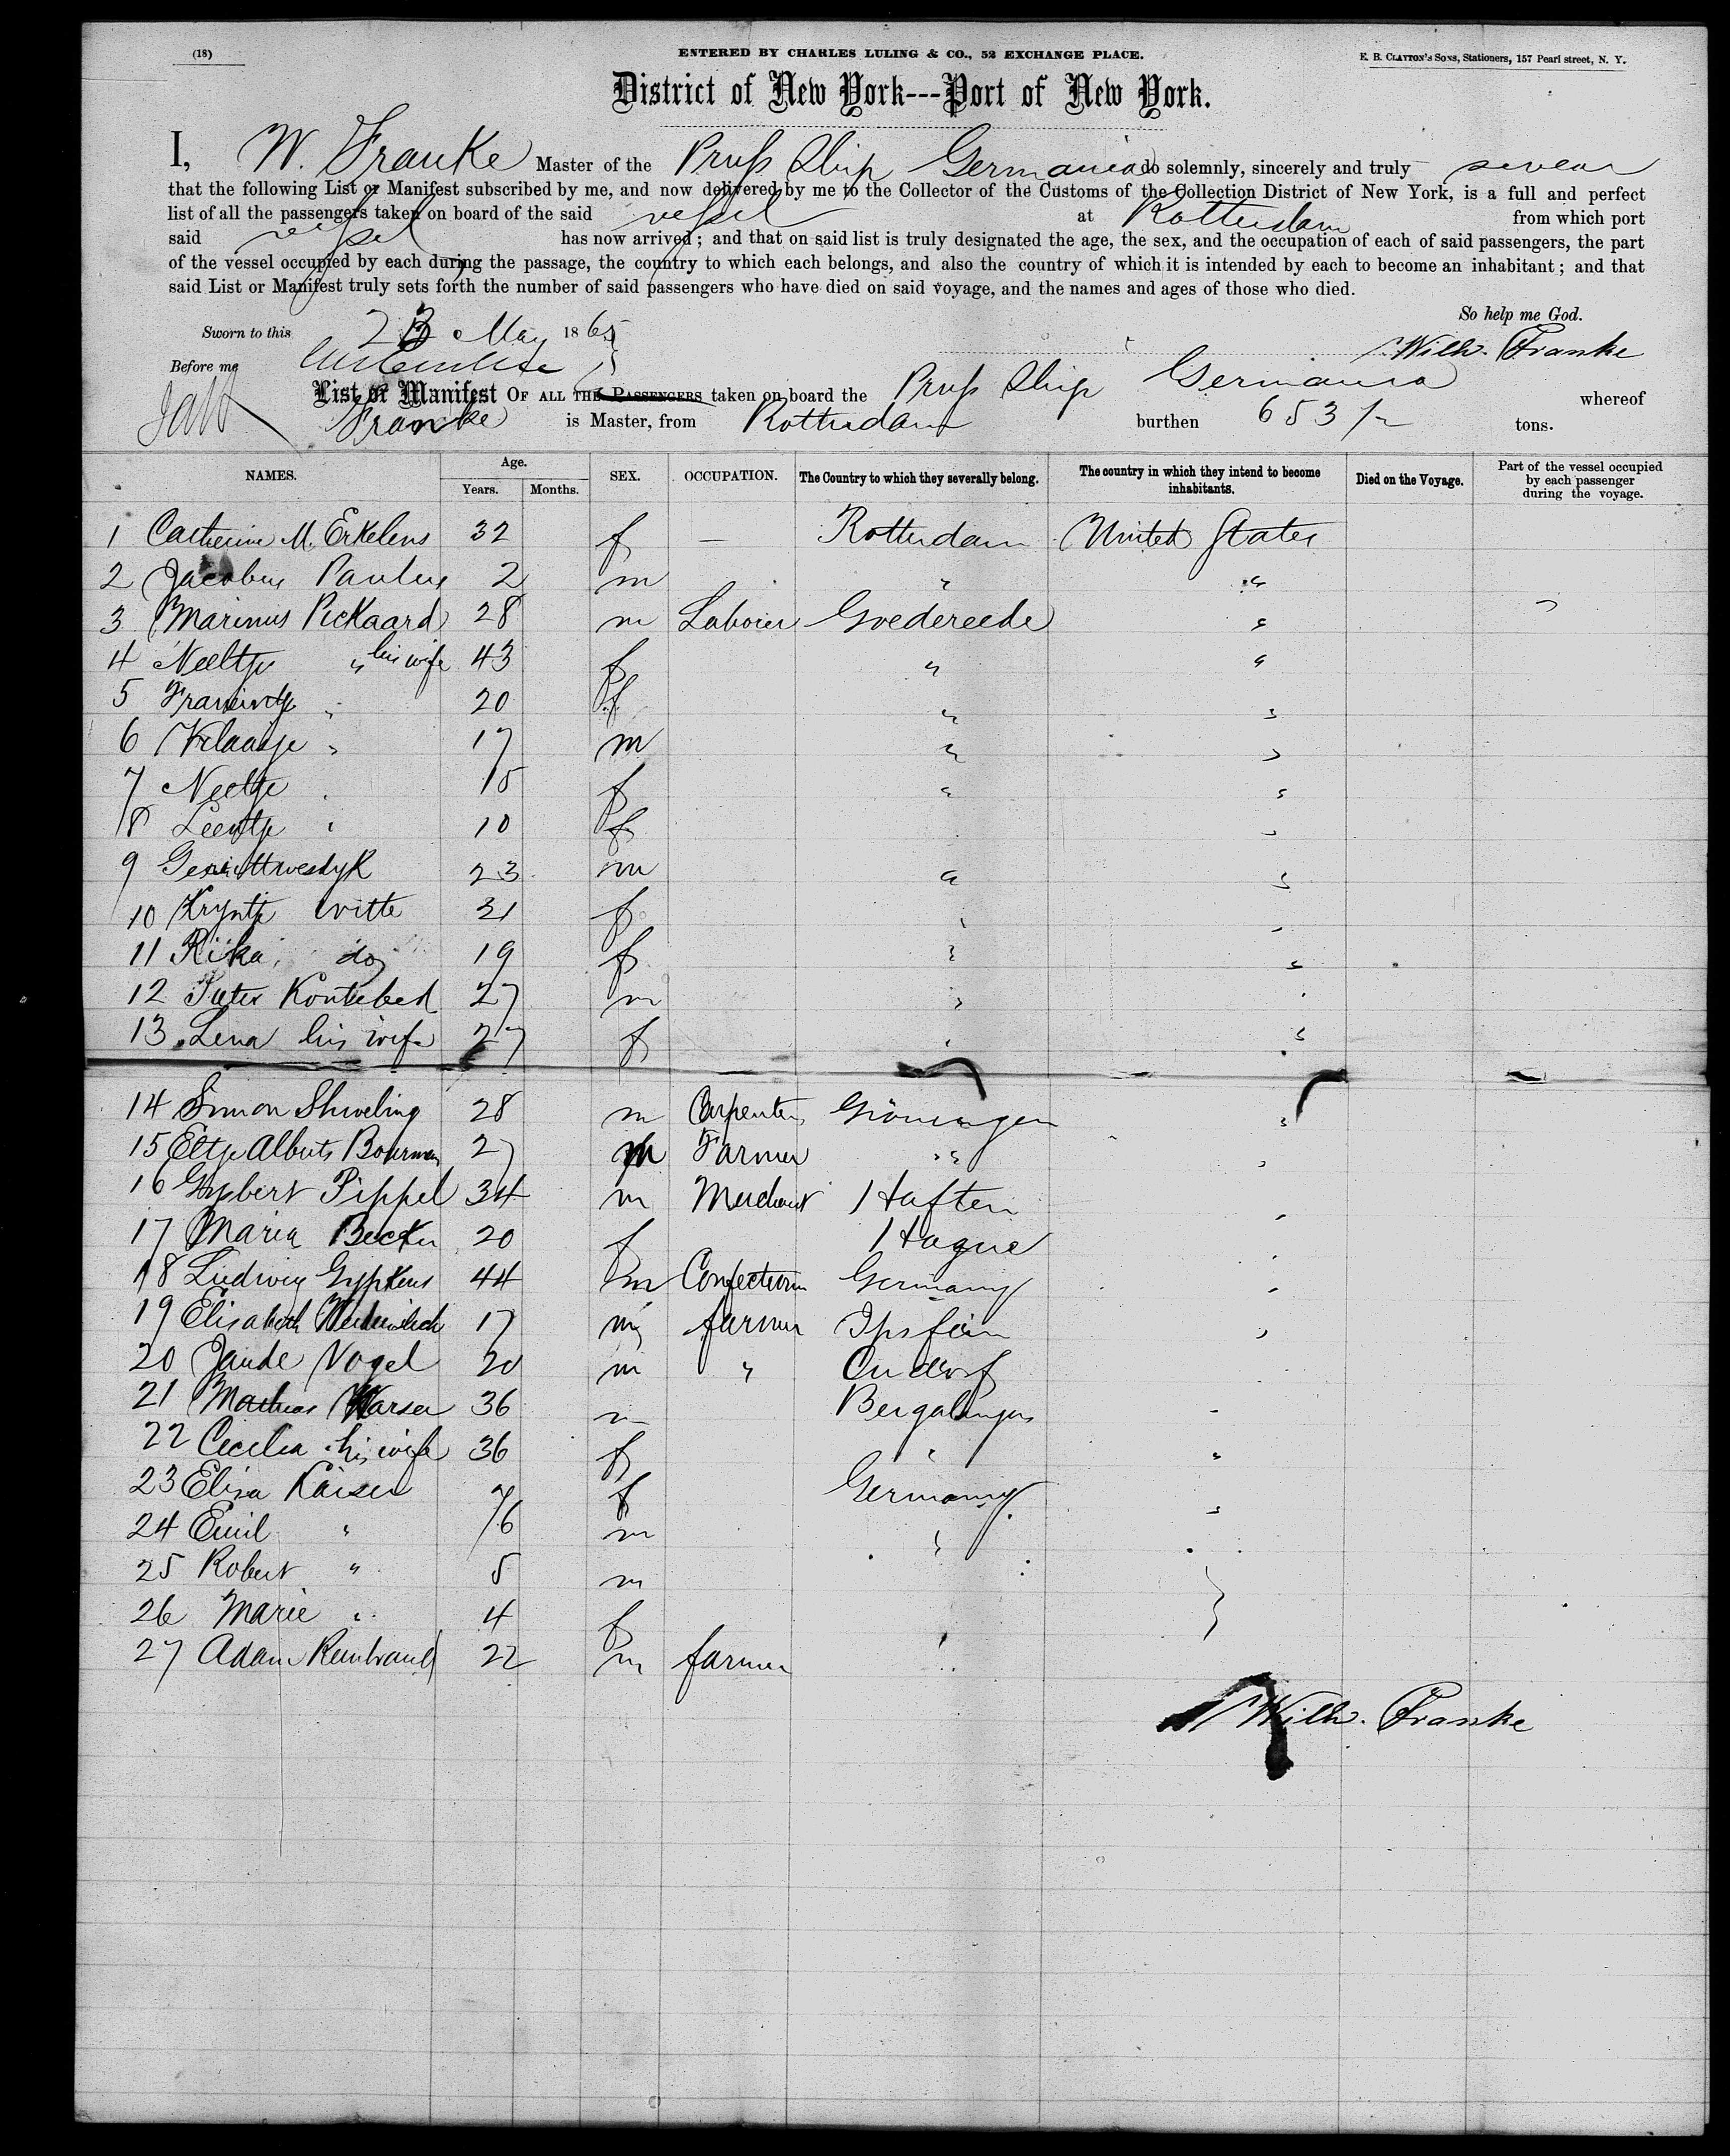 (18)
ENTERED BY CHARLES LULING & CO., 52 EXCHANGE PLACE.
E. B. CLAYTON'S SONS, Stationers, 157 Pearl street, N. Y.
District of New York---Port of New York.
I, W. Franke Master of the Pruss Ship Germania do solemnly, sincerely and truly swear
that the following List or Manifest subscribed by me, and now delivered by me to the Collector of the Customs of the Collection District of New York, is a full and perfect
list of all the passengers taken on board of the said vessel at Rotterdam from which port
said vessel has now arrived; and that on said list is truly designated the age, the sex, and the occupation of each of said passengers, the part
of the vessel occupied by each during the passage, the country to which each belongs, and also the country of which it is intended by each to become an inhabitant; and that
said List or Manifest truly sets forth the number of said passengers who have died on said voyage, and the names and ages of those who died.
So help me God.
Sworn to this 23 May 1865
Wilh. Franke
Before me
List or Manifest OF ALL THE PASSENGERS taken on board the Pruss Ship Germania whereof
Franke is Master, from Rotterdam burthen 653 1/2 tons.
NAMES. Age. Years. Months. SEX. OCCUPATION. The Country to which they severally belong. The country in which they intend to become inhabitants. Died on the Voyage. Part of the vessel occupied by each passenger during the voyage.
1 Catherine M. Erkelens 32 f — Rotterdam United States
2 Jacobus Paulus 2 m " "
3 Marinus Pickaard 28 m Laborer Goedereede "
4 Neeltje " his wife 43 f " "
5 20 f " "
6 Klaasje " 17 m " "
7 Neeltje " 15 f " "
8 Leentje " 10 f "
9 23 m " "
10 Kryntje Witte 31 f " "
11 Rika do 19 f " "
12 Pieter 27 m " "
13 Lena his wife 27 f " "
14 Simon 28 m Carpenter Gröningen "
15 Eltje Alberts 27 m Farmer " "
16 Gysbert Pippel 34 m Merchant Haften "
17 Maria Becker 20 f Hague "
18 Ludwig Gypkens 44 m Confectioner Germany "
19 Elisabeth 17 m farmer "
20 Vogel 20 m "
21 36 m "
22 Cecilia his wife 36 f " "
23 Elisa Kaiser 7 f Germany "
24 Emil " 6 m "
25 Robert " 5 m
26 Marie " 4 f
27 Adam 22 m farmer "
Wilh. Franke